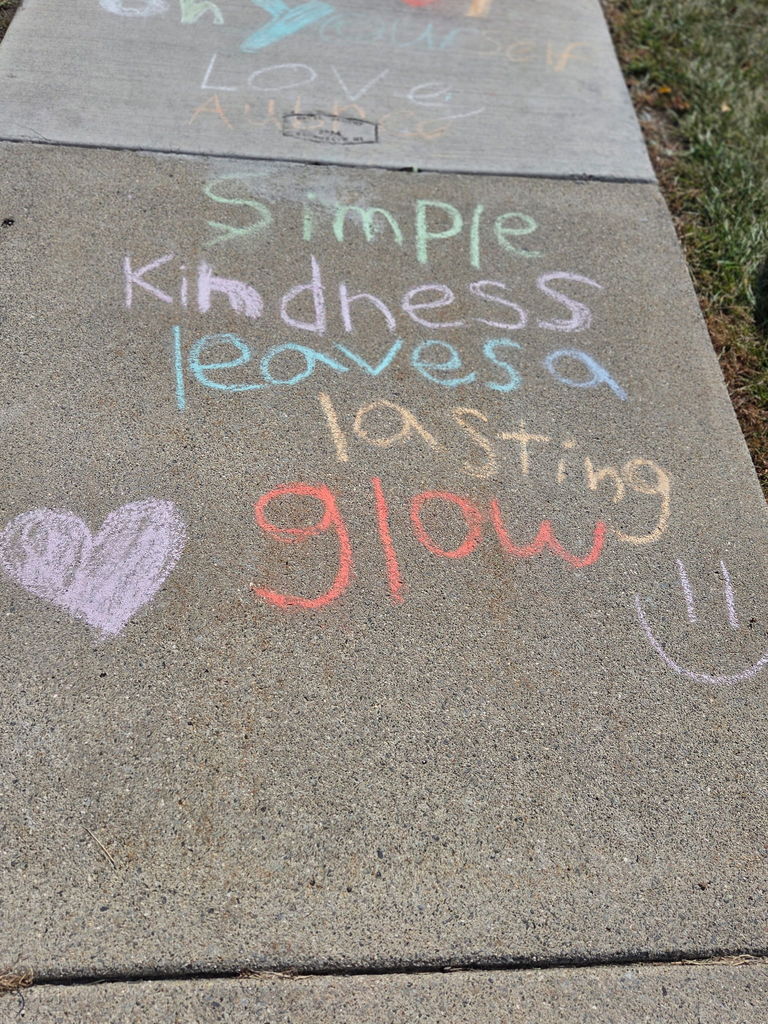 on yourself
Love
Simple
Kindness
leaves a
lasting
glow